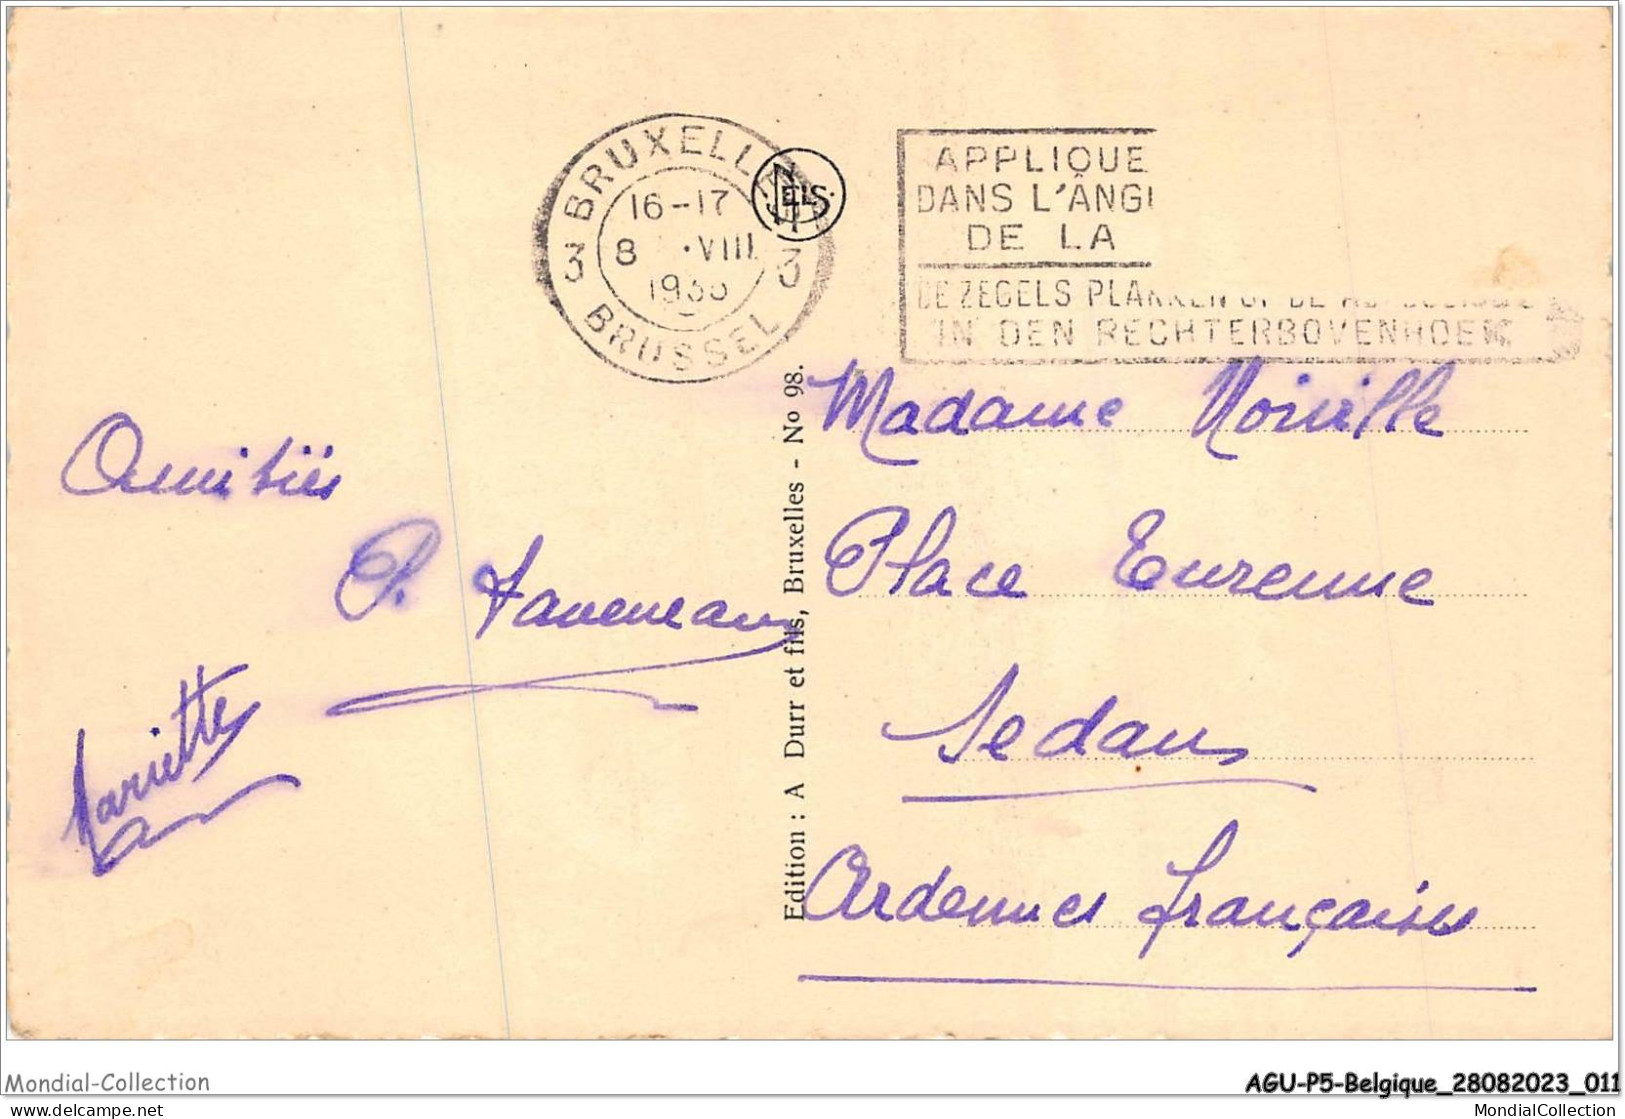 BRUXELLES
16-17
8 VIII
3 3
BRUSSEL
NELS
APPLIQUE
DANS L'ÂNGL
DE LA
DE ZEGELS PLAKKEN OP DE
IN DEN RECHTERBOVENHOEK
Amitiés
P. Taveneaux
Mariette
Edition : A Durr et fils, Bruxelles - No 98.
Madame Noiville
Place Turenne
Sedan
Ardennes françaises
Mondial-Collection
AGU-P5-Belgique_28082023_011
www.delcampe.net
MondialCollection